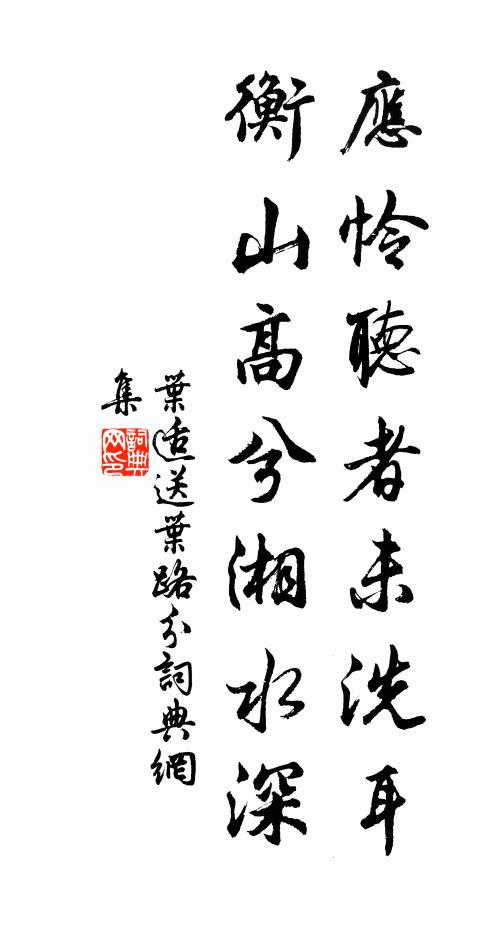 應怜聽者未洗耳
衡山高兮湘水深
葉适送葉路分詞典網
集
詞典網印